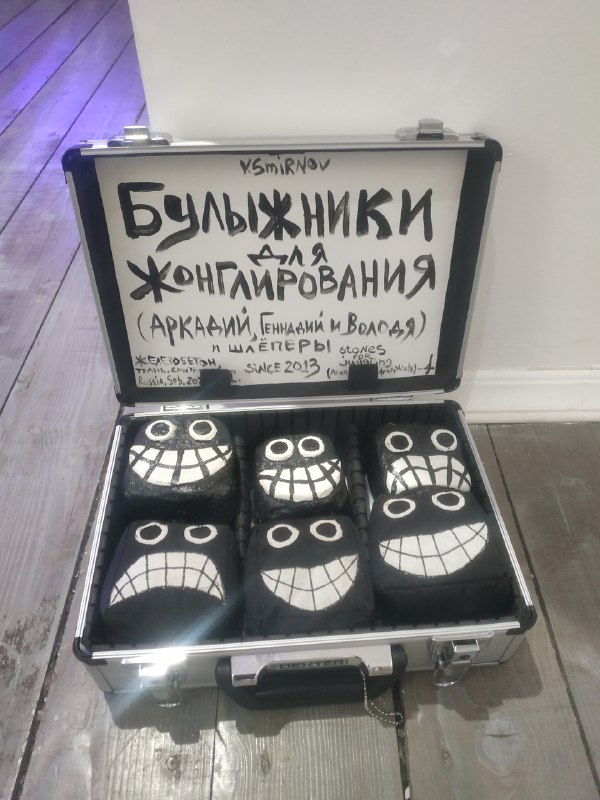 V.SMiRNOV
БУЛЫЖНИКИ
для
ЖОНГЛИРОВАНИЯ
(АРКАДИЙ, ГЕННАДИЙ и ВОЛОДЯ)
и ШЛЁПЕРЫ
ЖЕЛЕЗОБЕТОН,
ткань,
Russia, Spb,
SiNCE 2013
stones
FOR
juggling
DEXTER